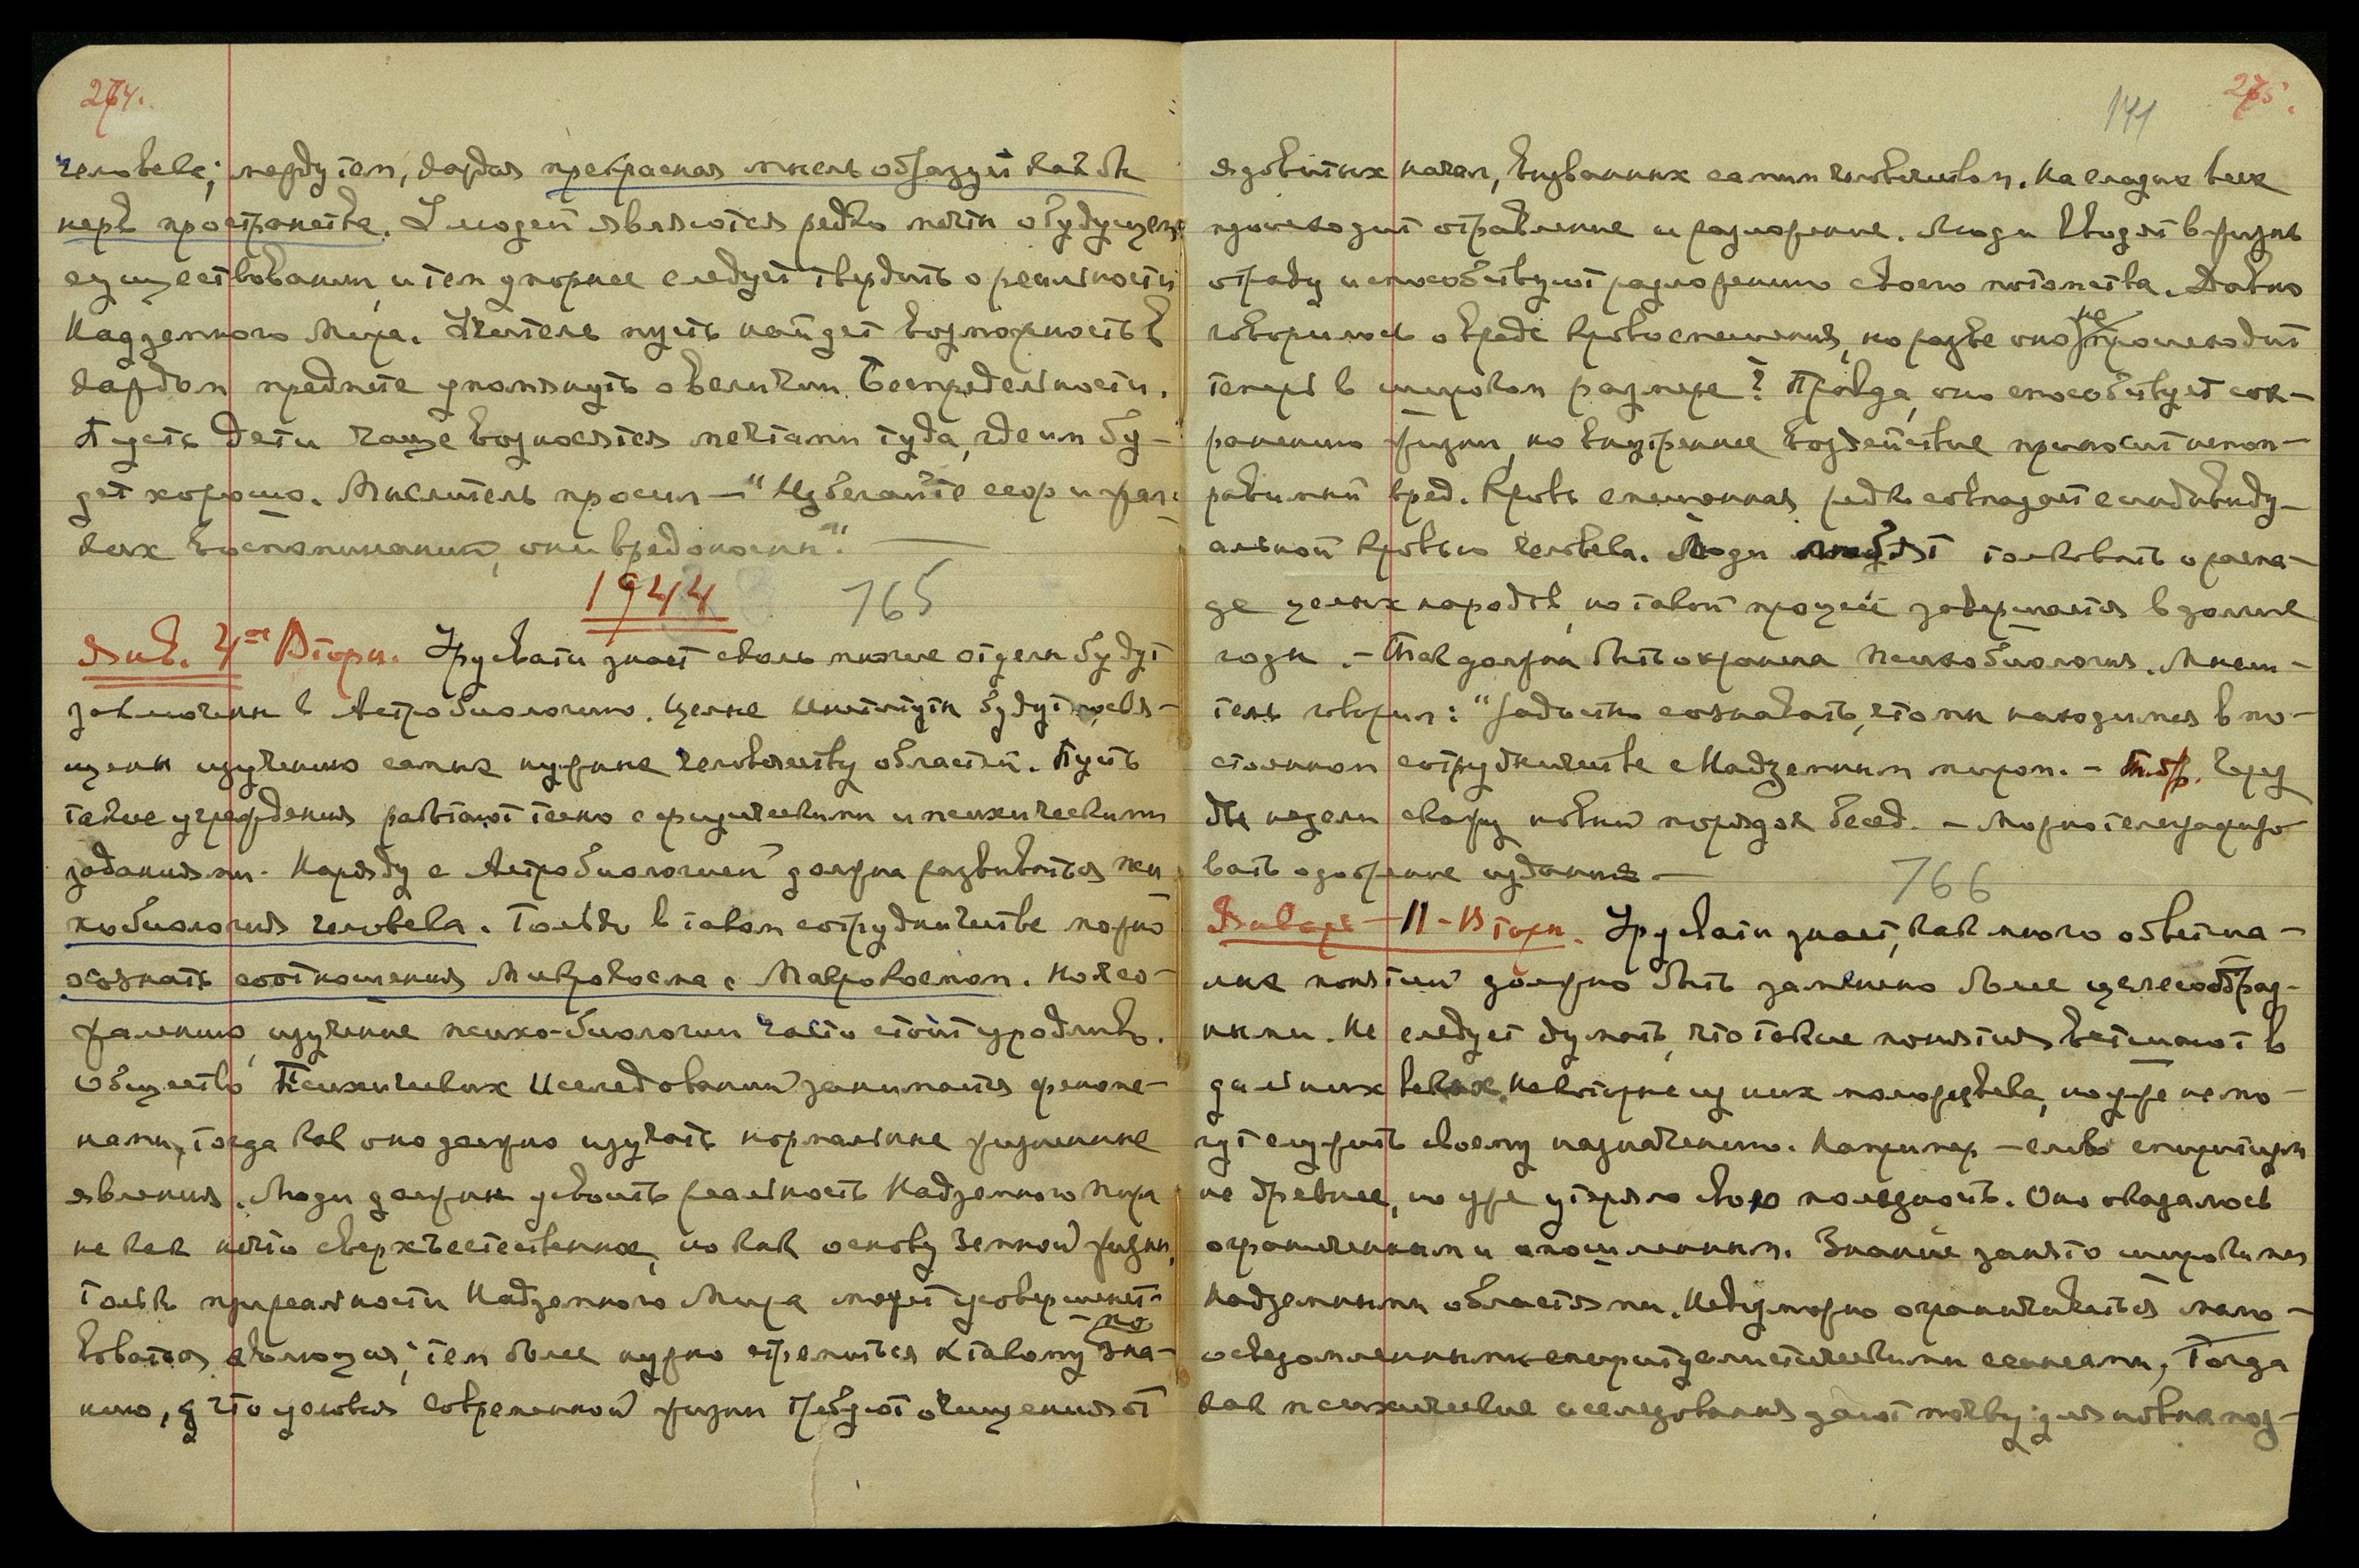 274.
человека; между тем, каждая прекрасная мысль образует как бы
нерв пространства. У людей являются редко мечты о будущем
существовании, и тем упорнее следует твердить о реальности
Надземного Мира. Учитель пусть найдет возможность в
каждом предмете упомянуть о величии Беспредельности.
Пусть дети чаще возносятся мечтами туда, где им бу-
дет хорошо. Мыслитель просил — "Избегайте ссор и
воспоминаний, они вредоносны". —
1944 765
Янв. 4ое Вторн. Урусвати знает сколь многие отделы будут
заключены в Астробиологию. Целые Институты будут посвя-
щены изучению самых нужных человечеству областей. Пусть
такие учреждения работают тесно с физическими и психическими
заданиями. Наряду с Астробиологией должна развиваться пси-
хобиология человека. Только в таком сотрудничестве можно
осознать соотношения Микрокосма с Макрокосмом. К со-
жалению, изучение психо-биологии часто стоит уродливо.
Общество Психических Исследований занимается феноме-
нами, тогда как оно должно изучать нормальные жизненные
явления. Люди должны усвоить реальность Надземного Мира
не как нечто сверхъестественное, но как основу Земной жизни,
Только при реальности Надземного Мира может усовершенст-
воваться эволюция; тем более нужно стремиться к такому позна-
нию, что условия современной жизни требуют очищения от
275.
141
ядовитых начал, вызванных самим человечеством. На глазах всех
происходит отравление и разложение. Люди вводят в жизнь
отраву и способствуют разложению своего потомства. Давно
говорилось о вреде кровосмешения, но разве оно не происходит
теперь в широком размере? Правда, оно способствует сох-
ранению жизни, но внутреннее воздействие приносит непоп-
равимый вред. Кровь смешанная редко совпадает с индивиду-
альной кровью человека. Люди любят толковать о распа-
де целых народов, но такой процесс завершается в долгие
годы. — Так должна быть охранена Психобиология. Мысли-
тель говорил: "Радостно сознавать, что мы находимся в по-
стоянном сотрудничестве с Надземным миром. — Через
две недели скажу новый порядок бесед. — Можно телеграфиро-
вать одобрение издания. —
766
Январь — 11 — Вторн. Урусвати знает, как много обветша-
лых понятий должно быть заменено более целесообраз-
ными. Не следует думать, что такие понятия ветшают в
дальних веках. Некоторые из них моложе века, но уже не мо-
гут служить своему назначению. Например — слово спиритизм
не древнее, но уже утеряло свою полезность. Оно оказалось
ограниченным и опошленным. Знание занято широкими
Надземными областями. Невозможно ограничиваться мало-
осведомленными спиритуалистическими сеансами, Тогда
как психические исследования дают почву для новых поз-